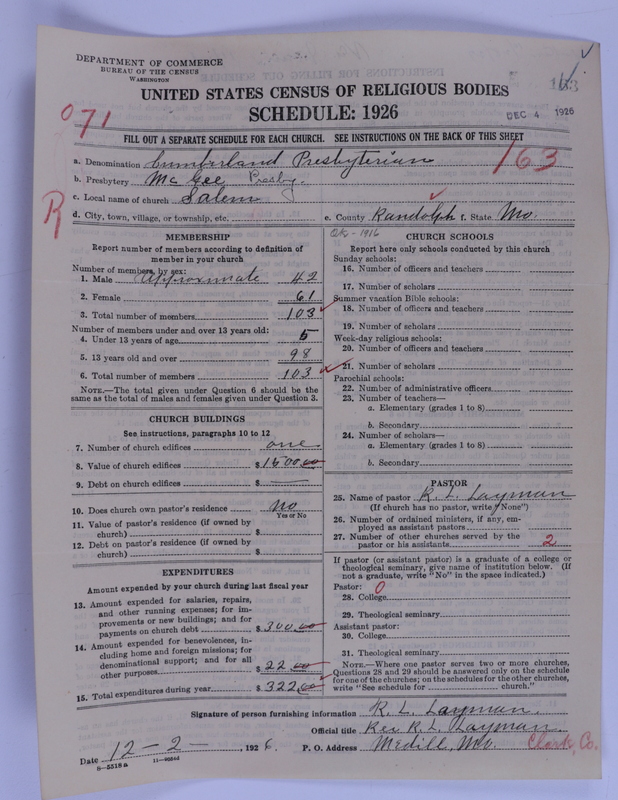 DEPARTMENT OF COMMERCE
BUREAU OF THE CENSUS
WASHINGTON
UNITED STATES CENSUS OF RELIGIOUS BODIES
SCHEDULE: 1926
DEC 4 1926
071
FILL OUT A SEPARATE SCHEDULE FOR EACH CHURCH. SEE INSTRUCTIONS ON THE BACK OF THIS SHEET
163
a. Denomination Cumberland Presbyterian
b. Presbytery McGee Presby.
c. Local name of church Salem
R
d. City, town, village, or township, etc. e. County Randolph f. State Mo.
MEMBERSHIP
Report number of members according to definition of member in your church
Number of members by sex:
1. Male Approximate 42
2. Female 61
3. Total number of members 103
Number of members under and over 13 years old:
4. Under 13 years of age 5
5. 13 years old and over 98
6. Total number of members 103
NOTE.—The total given under Question 6 should be
same as the total of males and females given under Question 3.
CHURCH BUILDINGS
See instructions, paragraphs 10 to 12
7. Number of church edifices one
8. Value of church edifices $1500.00
9. Debt on church edifices $
10. Does church own pastor's residence No
Yes or No
11. Value of pastor's residence (if owned by
church) $
12. Debt on pastor's residence (if owned by
church) $
EXPENDITURES
Amount expended by your church during last fiscal year
13. Amount expended for salaries, repairs,
and other running expenses; for im-
provements or new buildings; and for
payments on church debt $300.00
14. Amount expended for benevolences, in-
cluding home and foreign missions; for
denominational support; and for all
other purposes $22.00
15. Total expenditures during year $322.00
OK-1916
CHURCH SCHOOLS
Report here only schools conducted by this church
Sunday schools:
16. Number of officers and teachers
17. Number of scholars
Summer vacation Bible schools:
18. Number of officers and teachers
19. Number of scholars
Week-day religious schools:
20. Number of officers and teachers
21. Number of scholars
Parochial schools:
22. Number of administrative officers
23. Number of teachers—
a. Elementary (grades 1 to 8)
b. Secondary
24. Number of scholars—
a. Elementary (grades 1 to 8)
b. Secondary
PASTOR
25. Name of pastor R. L. Layman
(If church has no pastor, write "None")
26. Number of ordained ministers, if any, em-
ployed as assistant pastors
27. Number of other churches served by the
pastor or his assistants 2
If pastor (or assistant pastor) is a graduate of a college or
theological seminary, give name of institution below. (If
not a graduate, write "No" in the space indicated.)
Pastor: 0
28. College
29. Theological seminary
Assistant pastor:
30. College
31. Theological seminary
NOTE.—Where one pastor serves two or more churches,
Questions 28 and 29 should be answered only on the schedule
for one of the churches; on the schedules for the other churches,
write "See schedule for church."
Signature of person furnishing information R. L. Layman.
Official title Rev R. L. Layman
Date 12-2-, 1926. P. O. Address Medill, Mo. Clark, Co.
8-5518a